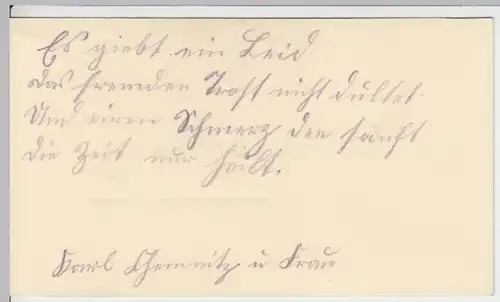 Es giebt ein Leid
das fremden Trost nicht dultet
Und einen Schmerz den sanft
die Zeit nur heilt.
Karl Chemnitz u Frau